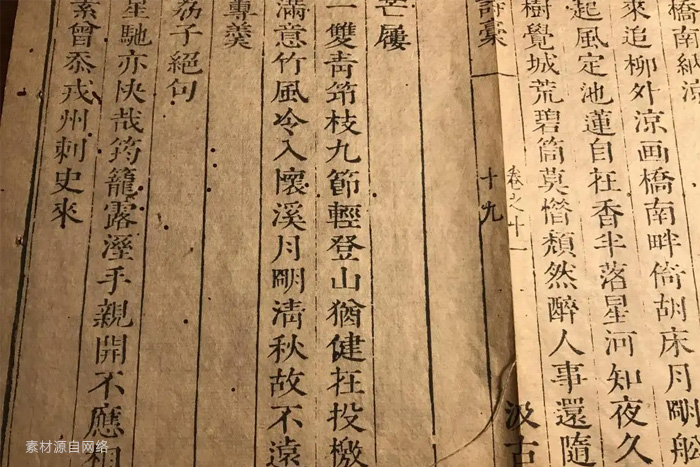 橋南納涼
來追柳外涼画橋南畔倚胡床月明船
起風定池蓮自在香半落星河知夜久
樹覺城荒碧筒莫惜頹然醉人事還隨
卷之十一
詩稾
十九
汲古
芒屨
一雙青笻枝九節輕登山猶健在投檄
滿意竹風冷入懷溪月明清秋故不遠
蓴羹
荔子絕句
星馳亦快哉筠籠露溼手親開不應相
曾忝戎州刺史來
素材源自网络